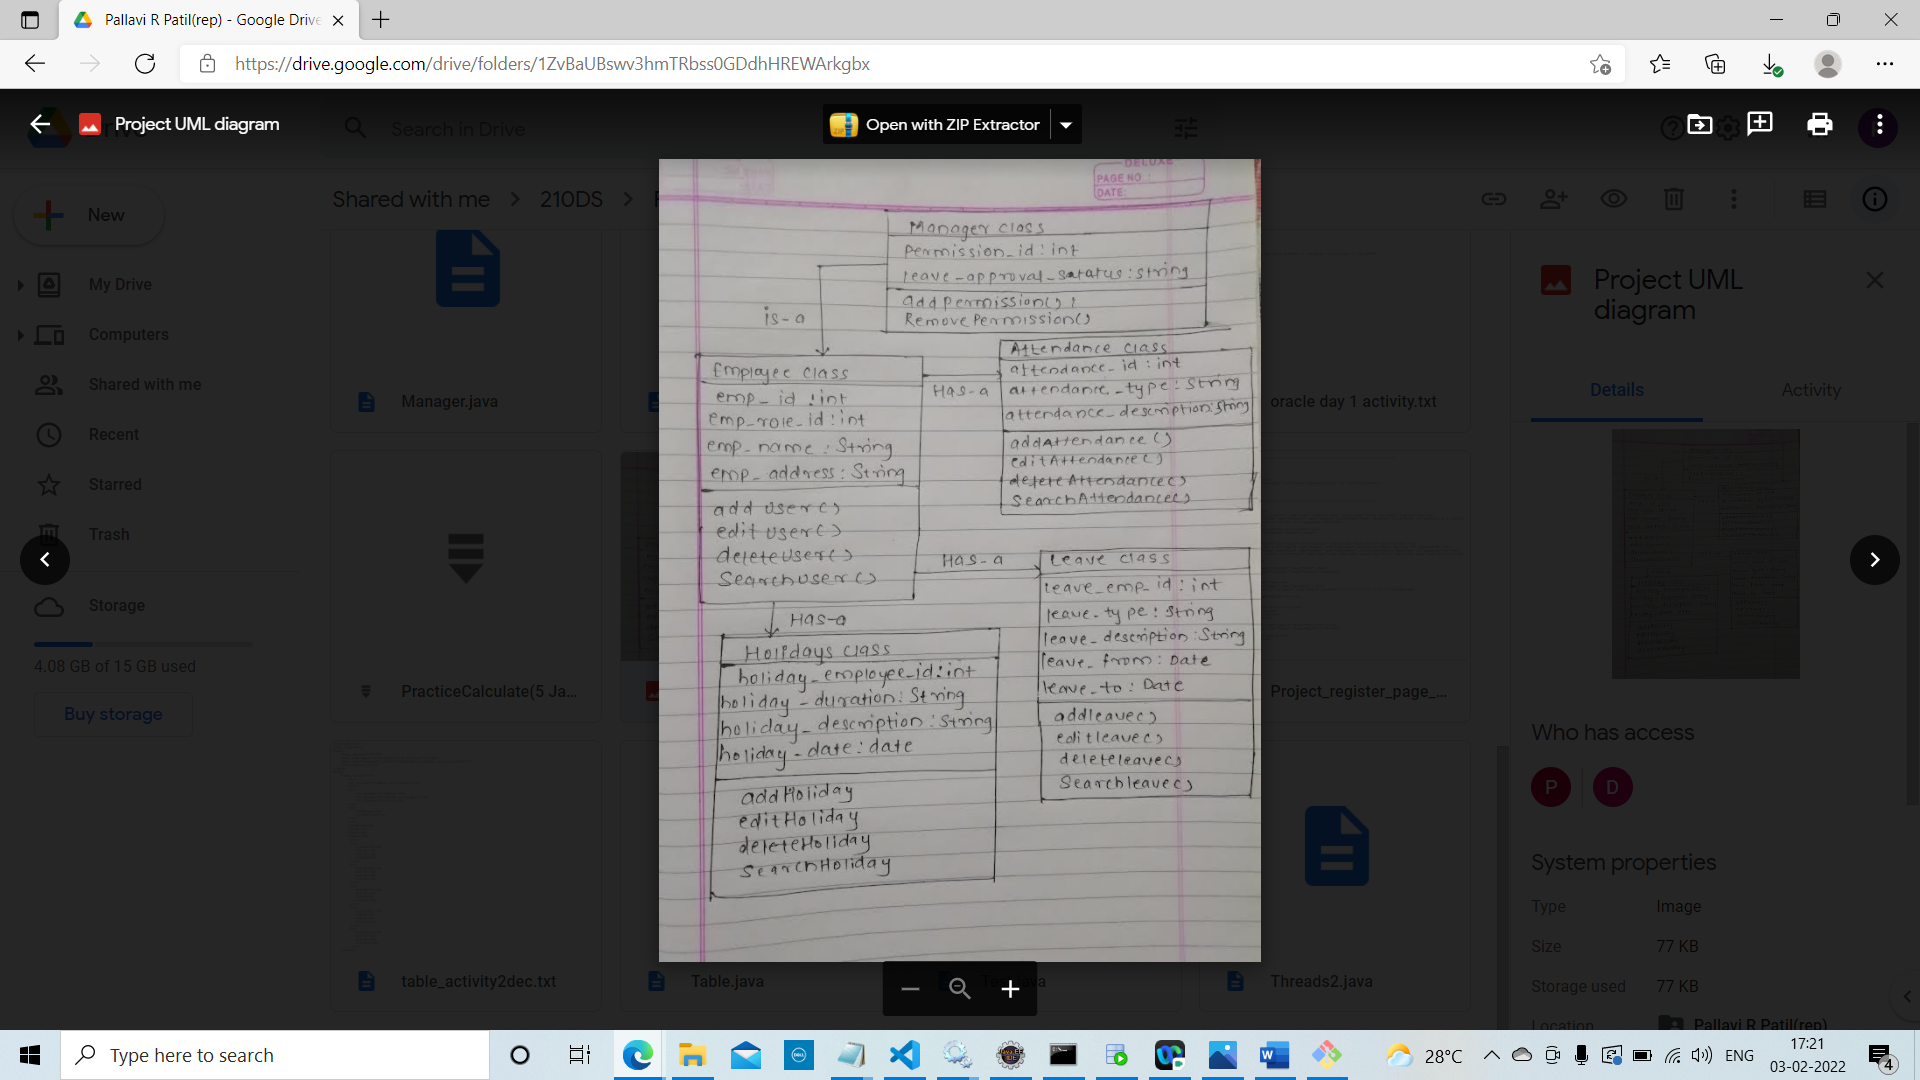 Pallavi R Patil(rep) - Google Drive
https://drive.google.com/drive/folders/1ZvBaUBswv3hmTRbss0GDdhHREWArkgbx
Project UML diagram
Search in Drive
Open with ZIP Extractor
New
Shared with me > 210DS >
My Drive
Computers
Shared with me
Recent
Starred
Trash
Storage
4.08 GB of 15 GB used
Buy storage
Manager.java
oracle day 1 activity.txt
PracticeCalculate(5 Ja...
Project_register_page_...
table_activity2dec.txt
Table.java
Threads2.java
DELUXE
PAGE NO.:
DATE:
Manager class
Permission_id : int
leave_approval_satatus : string
addPermission()
RemovePermission()
is-a
Employee class
emp_id : int
emp_role_id : int
emp_name : String
emp_address : String
add user()
edit user()
deleteuser()
Searchuser()
Has-a
Attendance class
attendance_id : int
attendance_type : String
attendance_description:String
addAttendance()
editAttendance()
deleteAttendance()
SearchAttendance()
Has-a
Leave class
leave_emp_id : int
leave_type : String
leave_description : String
leave_from : Date
leave_to : Date
addleave()
editleave()
deleteleave()
Searchleave()
Has-a
Holidays class
holiday_employee_id : int
holiday_duration : String
holiday_description : String
holiday_date : date
addHoliday
editHoliday
deleteHoliday
SearchHoliday
Project UML
diagram
Details
Activity
Who has access
P
D
System properties
Type Image
Size 77 KB
Storage used 77 KB
Location Pallavi R Patil(rep)
Type here to search
28°C
ENG
17:21
03-02-2022
4